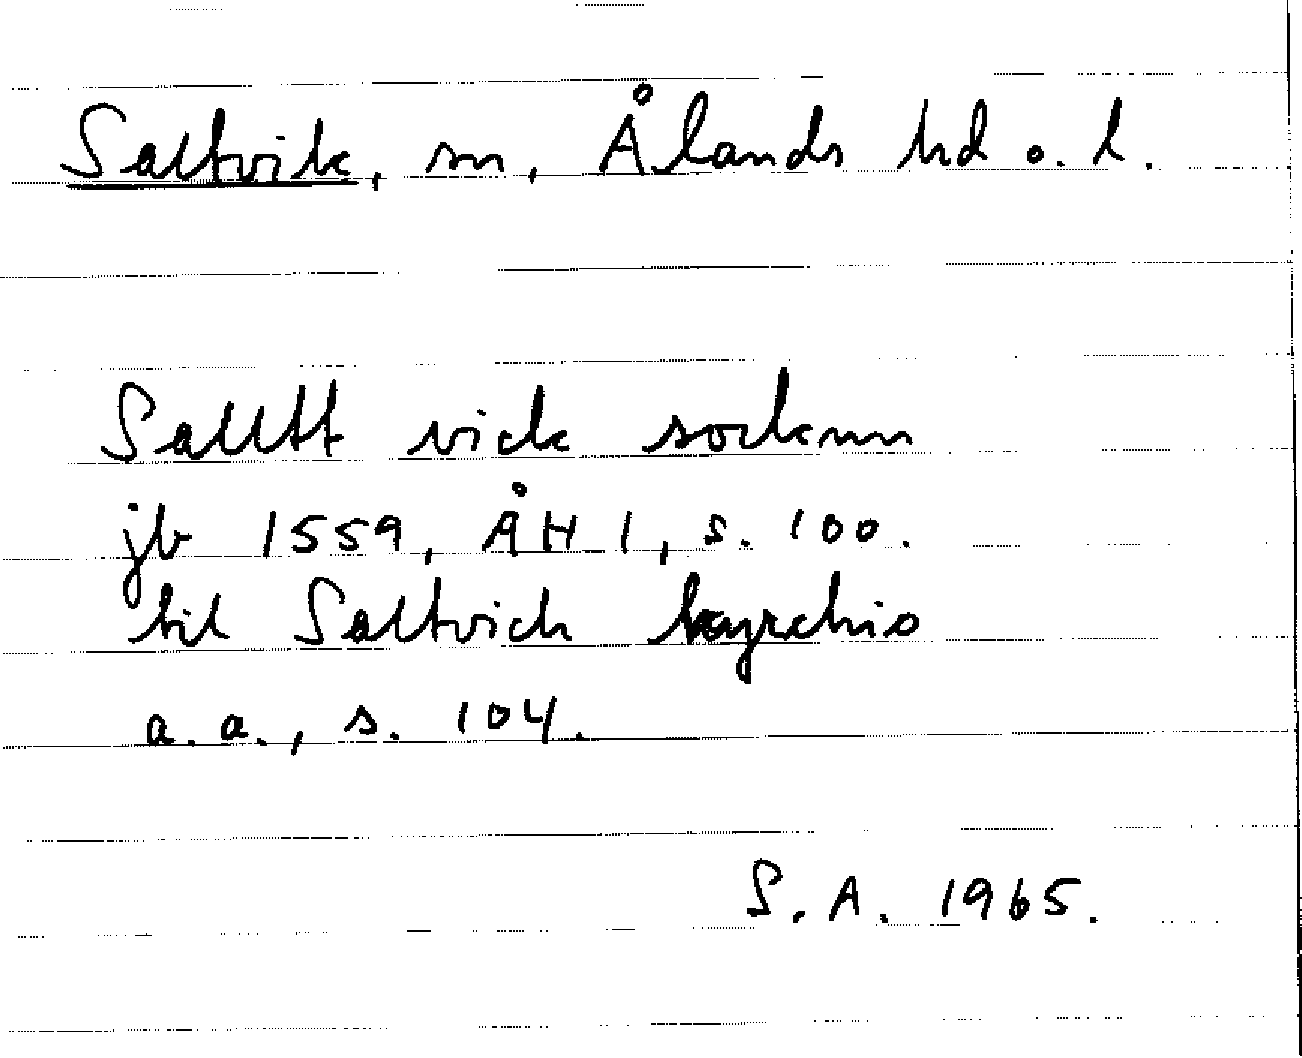 Saltvik, sn, Ålands hd o. l.
Salltt vick socknn
jb 1559, ÅH 1, s. 100.
til Saltvich kyrchio
a. a., s. 104.
S. A. 1965.